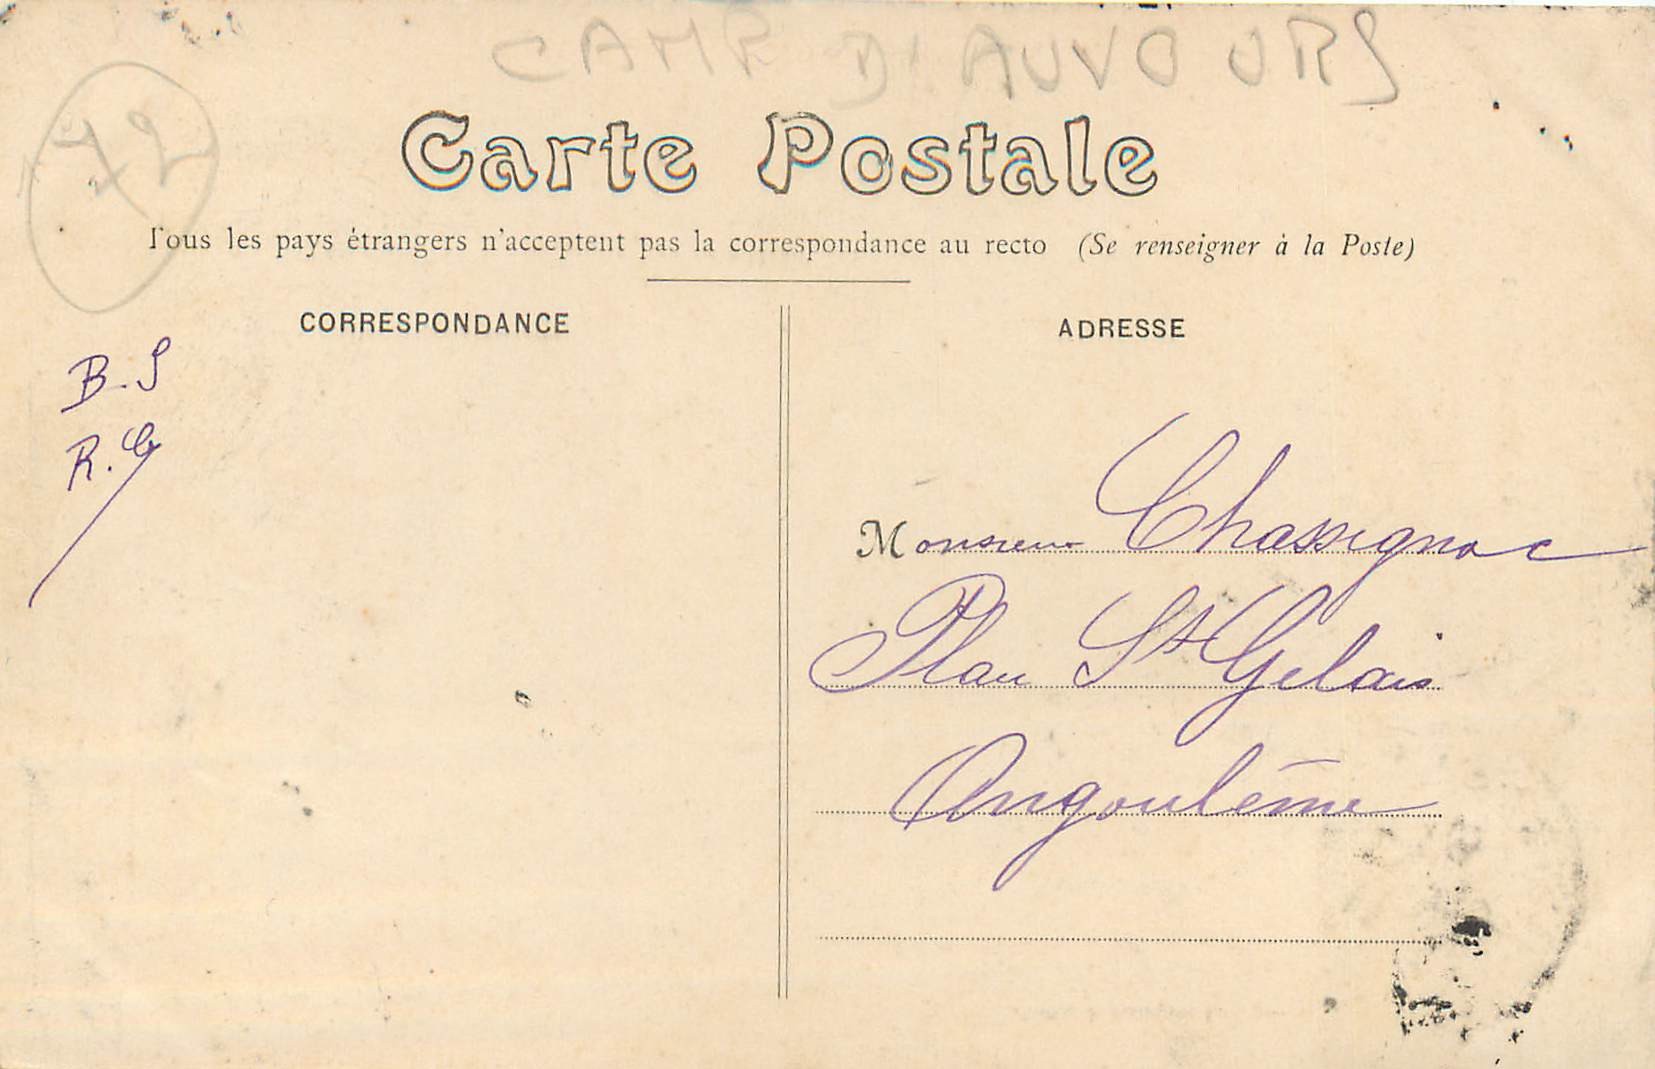 CAMP D'AUVOURS
72
Carte Postale
Tous les pays étrangers n'acceptent pas la correspondance au recto (Se renseigner à la Poste)
CORRESPONDANCE
ADRESSE
B.S
R.G
Monsieur Chassignac
Plan St Gelais
Angoulême